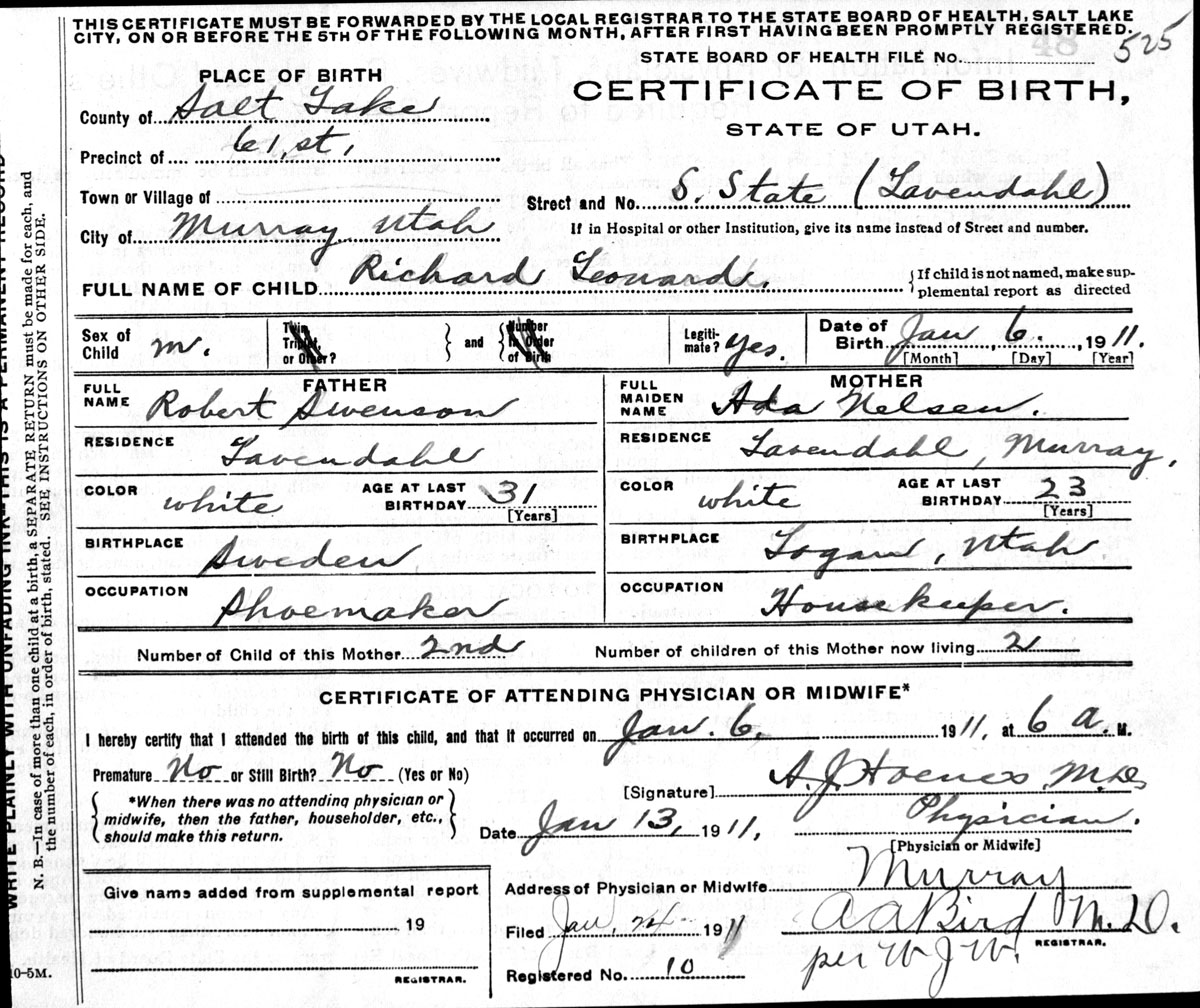 THIS CERTIFICATE MUST BE FORWARDED BY THE LOCAL REGISTRAR TO THE STATE BOARD OF HEALTH, SALT LAKE
CITY, ON OR BEFORE THE 5TH OF THE FOLLOWING MONTH, AFTER FIRST HAVING BEEN PROMPTLY REGISTERED.
STATE BOARD OF HEALTH FILE No. 525
CERTIFICATE OF BIRTH,
STATE OF UTAH.
PLACE OF BIRTH
County of Salt Lake
Precinct of 61, st,
Town or Village of
Street and No. S. State (Lavendahl)
City of Murray Utah
If in Hospital or other Institution, give its name instead of Street and number.
FULL NAME OF CHILD Richard Leonard.
{If child is not named, make sup-
plemental report as directed
Sex of Child m.
Twin Triplet, or Other?
} and {
Number in Order of Birth
Legiti-mate? yes.
Date of Birth Jan 6. 1911.
[Month] [Day] [Year]
FATHER
FULL NAME Robert Swenson
RESIDENCE Lavendahl
COLOR white AGE AT LAST BIRTHDAY 31
[Years]
BIRTHPLACE Sweden
OCCUPATION Shoemaker
MOTHER
FULL MAIDEN NAME Ada Nelsen.
RESIDENCE Lavendahl, Murray,
COLOR white AGE AT LAST BIRTHDAY 23
[Years]
BIRTHPLACE Logan, Utah
OCCUPATION Housekeeper.
Number of Child of this Mother 2nd Number of children of this Mother now living 2
CERTIFICATE OF ATTENDING PHYSICIAN OR MIDWIFE*
I hereby certify that I attended the birth of this child, and that it occurred on Jan. 6, 1911, at 6 a. M.
Premature No or Still Birth? No (Yes or No)
{*When there was no attending physician or
midwife, then the father, householder, etc.,
should make this return.}
[Signature] A. J. M.D.
Date Jan 13, 1911, Physician.
[Physician or Midwife]
Give name added from supplemental report
19
REGISTRAR.
Address of Physician or Midwife Murray
Filed Jan. 24 1911 A A Bird M.D.
REGISTRAR.
per W J W.
Registered No. 10
10-5M.
WRITE PLAINLY WITH UNFADING INK—THIS IS A PERMANENT RECORD
N. B.—In case of more than one child at a birth, a SEPARATE RETURN must be made for each, and
the number of each, in order of birth, stated. SEE INSTRUCTIONS ON OTHER SIDE.